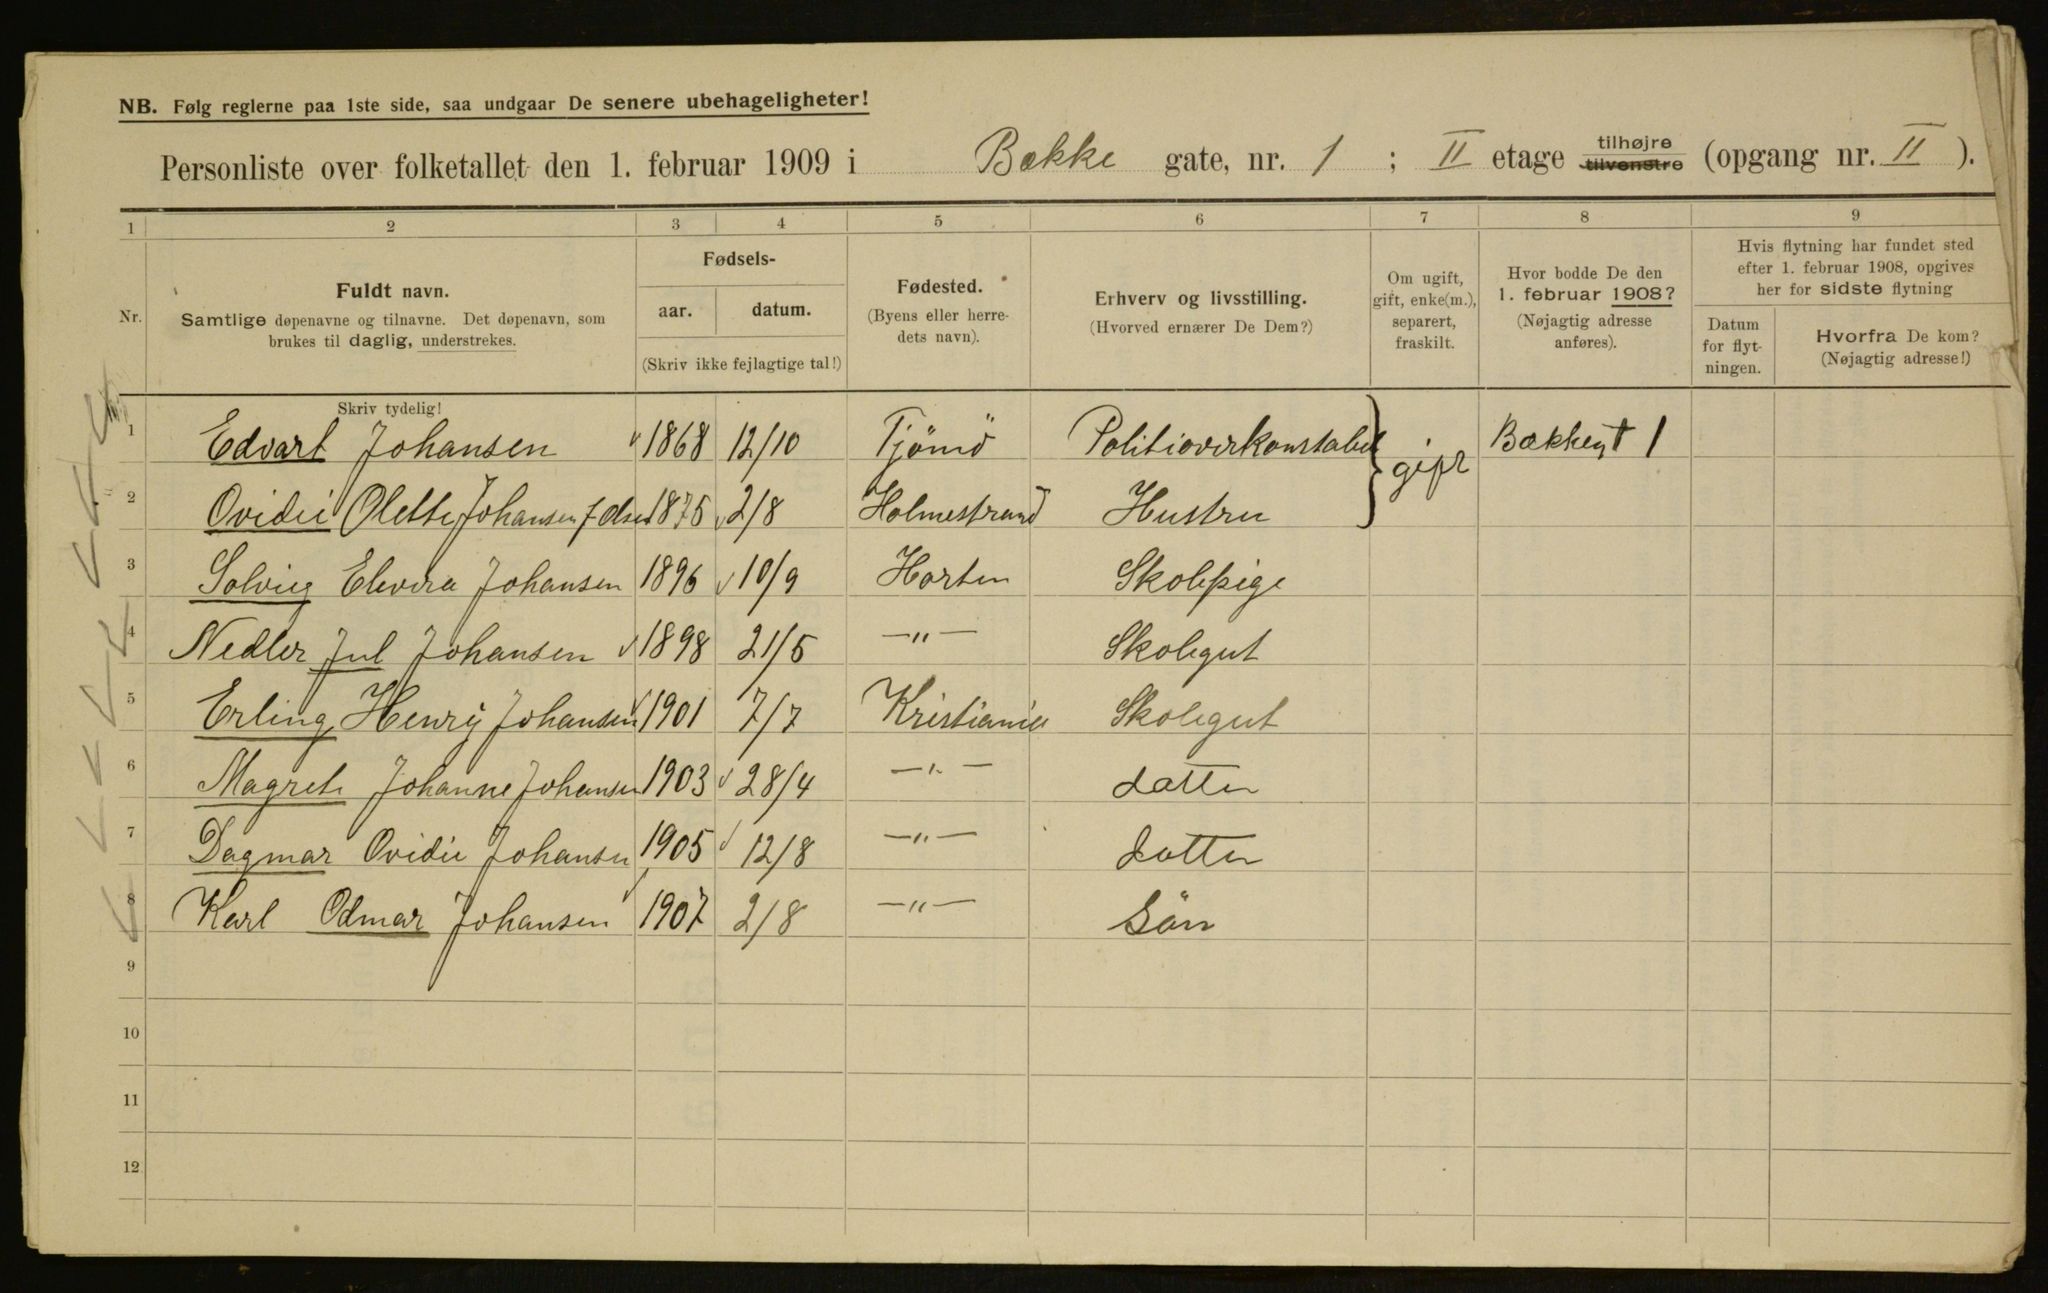 NB. Følg reglerne paa 1ste side, saa undgaar De senere ubehageligheter!
Personliste over folketallet den 1. februar 1909 i Bække gate, nr. 1 ; II etage tilhøjre tilvenstre (opgang nr. II ).
1 2 3 4 5 6 7 8 9
Nr.
Fuldt navn.
Samtlige døpenavne og tilnavne. Det døpenavn, som
brukes til daglig, understrekes.
Fødsels-
aar. datum.
(Skriv ikke fejlagtige tal!)
Fødested.
(Byens eller herre-
dets navn).
Erhverv og livsstilling.
(Hvorved ernærer De Dem?)
Om ugift,
gift, enke(m.),
separert,
fraskilt.
Hvor bodde De den
1. februar 1908?
(Nøjagtig adresse
anføres).
Hvis flytning har fundet sted
efter 1. februar 1908, opgives
her for sidste flytning
Datum
for flyt-
ningen.
Hvorfra De kom?
(Nøjagtig adresse!)
Skriv tydelig!
1 Edvart Johansen 1868 12/10 Tjömö Politioverkonstabel gift Bækkegt 1
2 Ovidii Olette Johansen 1875 2/8 Holmestrand Hustru
3 Solvieg Elevira Johansen 1896 10/9 Horten Skolepige
4 Nedler Jul Johansen 1898 21/5 —"— Skolegut
5 Erling Henry Johansen 1901 7/7 Kristiania Skolegut
6 Magrete Johanne Johansen 1903 28/4 —"— datter
7 Dagmar Ovidie Johansen 1905 12/8 —"— datter
8 Karl Odmar Johansen 1907 2/8 —"— Sön
9
10
11
12